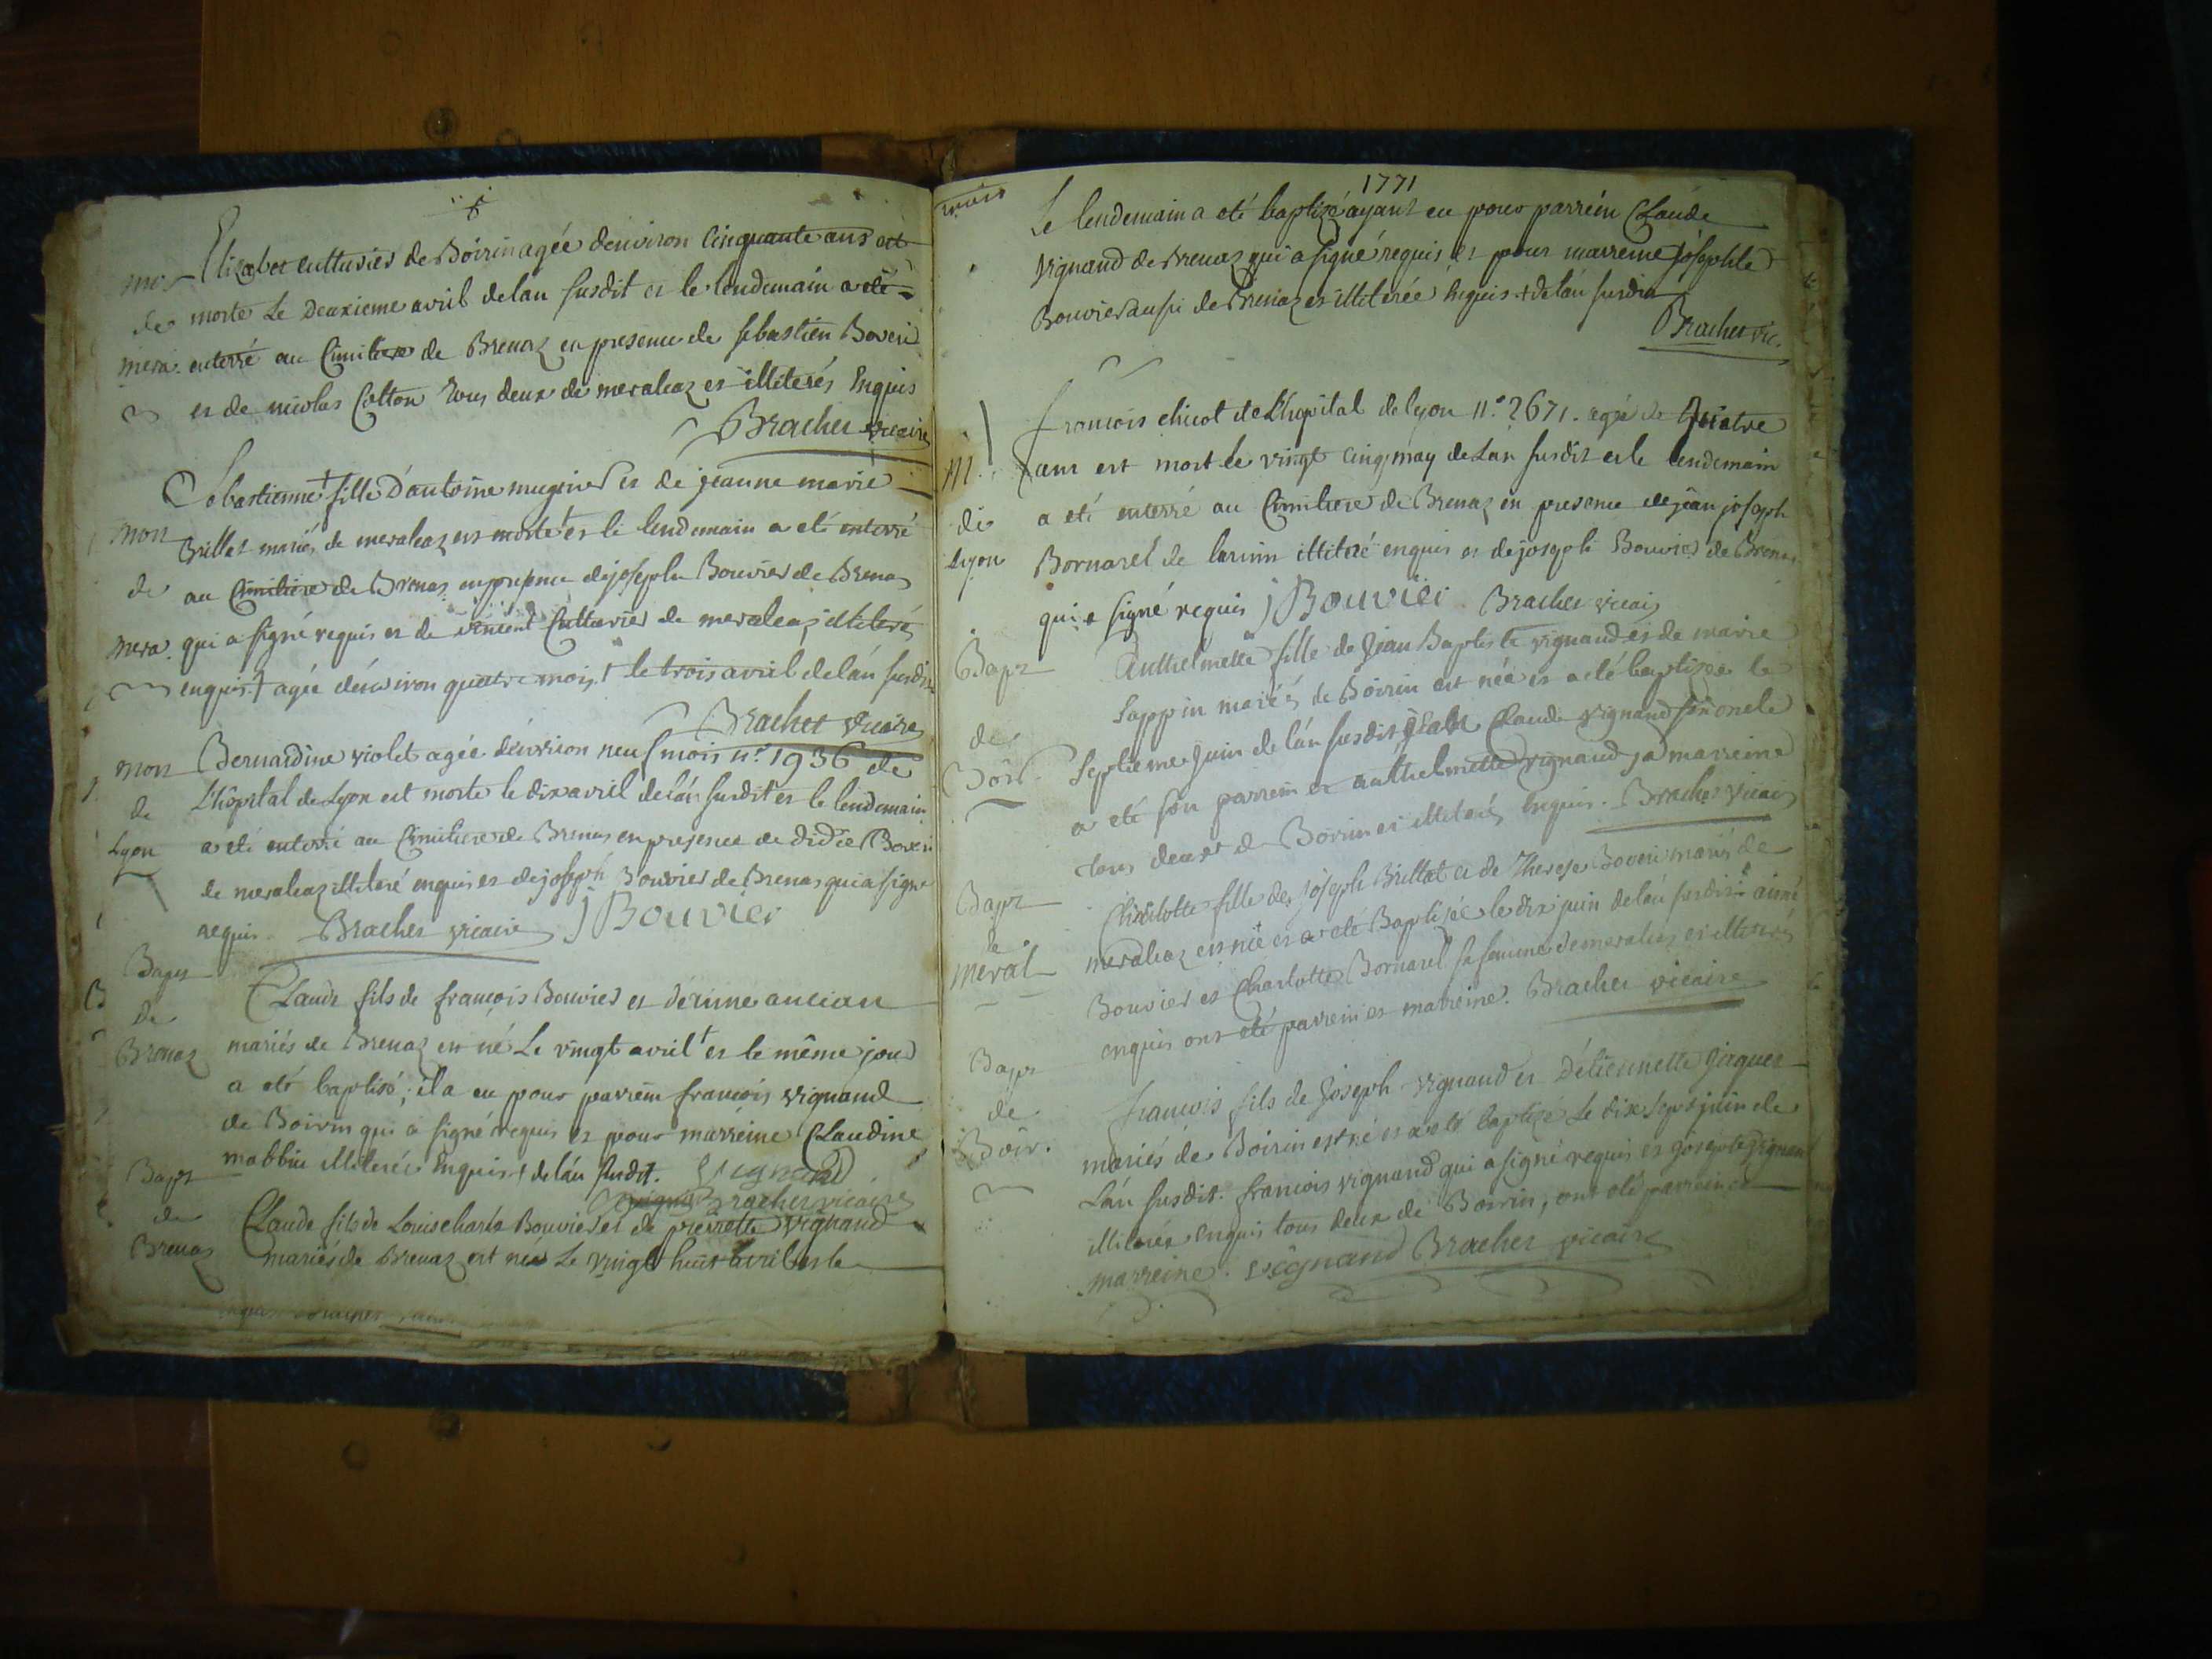 Elizabet cuttivier de Boirin agée denviron Cinquante ans est
morte Le Deuxieme avril delan susdit et le lendemain a eté
enterré au Cimitiere de Brenaz en presence de sebastien Boveri
et de nicolas Cotton tous deux de meraleaz et illiterés Enquis
Brachet vicaire
mor
de
mera.
Sebastienne fille D'antoine mugnier et de jeanne marie
Brillat mariés de meraleaz est morte et le lendemain a eté enterré
au Cimitiere de Brenaz en presence de joseph Bouvier de Brenaz
qui a signé requis et de vincent Cuttivier de meraleaz illiteré
enquis + agée d'environ quatre mois + le trois avril de l'án susdit
Brachet vicaire
mort
de
mera.
Bernardine violet agée d'environ neuf mois n.° 1936 de
L'hôpital de Lyon est morte le dix avril de l'án susdit et le lendemain
a eté enterré au Cimitiere de Brenaz en presence de didier Boveri
de meraleaz illiteré enquis et de joseph Bouvier de Brenaz qui a signé
requis. Brachet vicaire J Bouvier
mort
de
Lyon
Bapt
de
Brenaz
Claude fils de françois Bouvier et ancian
mariés de Brenaz est né Le vingt avril + et le même jour
a eté baptisé; il a eu pour parrein françois vignand
de Boirin qui a signé requis et pour marreine Claudine
mabbin illiterée Enquis + de l'án susdit. Vignand
Brachet vicaire
Bapt
de
Brenaz
Claude fils de Louis charle Bouvier et de pierrotte vignand
mariés de Brenaz est né Le vingt huit avril et le
1771
Le lendemain a eté baptizé ayant eu pour parrein Claude
vignand de Brenaz qui a signé requis et pour marreine josephte
Bouvier aussi de Brenaz et illiterée Enquis + de l'án susdit
Brachet vic.
françois chicot de L'hopital de lyon n.° 2671. agé de Quatre
ans est mort le vingt cinq may de L'an susdit et le lendemain
a eté enterré au Cimitiere de Brenaz en presence de jean joseph
Bornarel de illiteré enquis et de joseph Bouvier de Brenaz
qui a signé requis J Bouvier. Brachet vicaire
M.
de
Lyon
Bapt
de
Boir.
Anthelmette fille de Jean Baptiste vignand et de marie
Sappin mariés de Boirin est née et a eté baptisée le
Septieme juin de l'án susdit Jean Claude vignand son oncle
a eté son parrein et anthelmette vignand sa marreine
tous deux de Boirin et illiterés Enquis. Brachet vicaire
Bapt
de
meral
Charlotte fille de joseph Brillat et de Therese Boveri mariés de
meraleaz est née et a eté Baptisée le dix juin de l'án susdit. aimé
Bouvier et Charlotte Bornarel sa femme de meraleaz et illiterés
enquis ont eté parrein et marreine. Brachet vicaire
Bapt
de
Boir.
françois fils de Joseph vignand et D'étiennette Jaques
mariés de Boirin est né et a eté baptizé Le dix sept juin de
L'án susdit. françois vignand qui a signé requis et josephte vignand
illiterée enquis tous deux de Boirin, ont eté parrein et
marreine. vignand Brachet vicaire